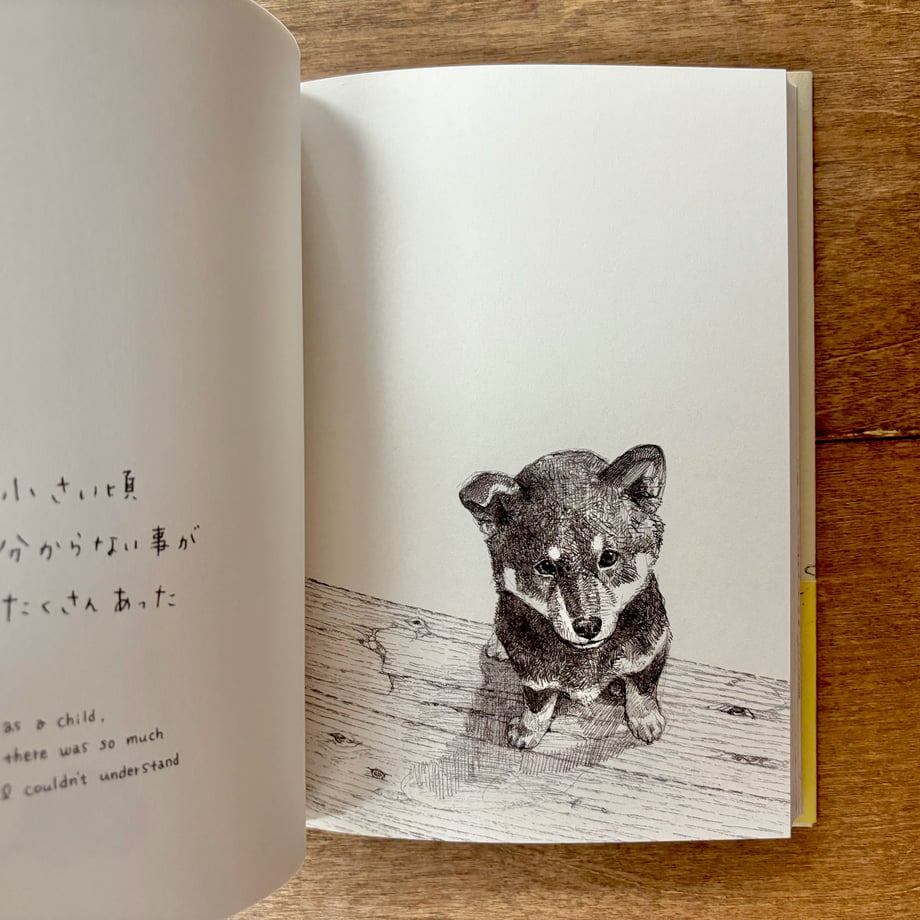 小さい頃
分からない事が
たくさんあった
as a child,
there was so much
I couldn't understand